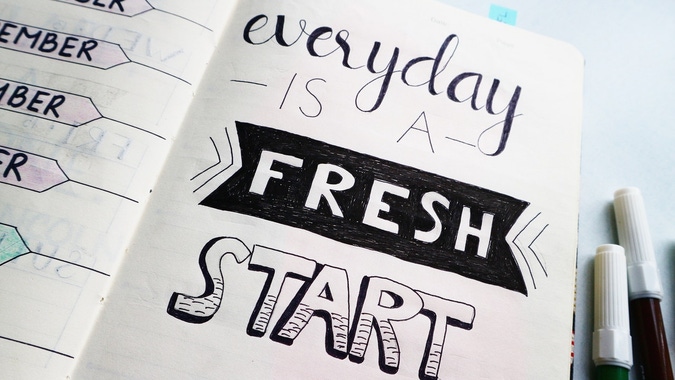 BER
EMBER
MBER
ER
everyday
IS
A
FRESH
START